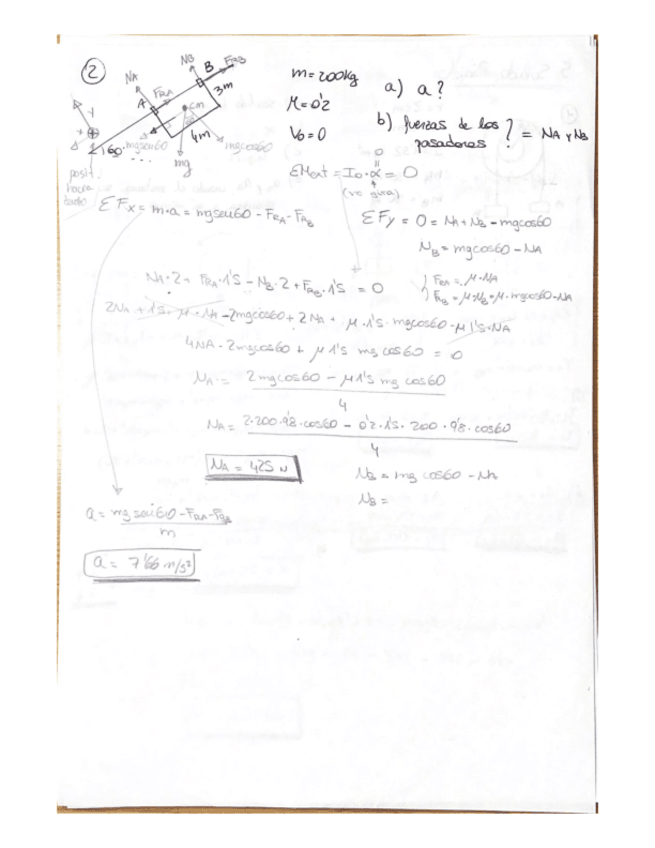 2
NA
NB
B
FRB
FRA
A
3m
cm
4m
60
mgsen60
mg
mgcos60
m = 200kg
M = 0'2
V0 = 0
a) a?
b) fuerzas de los pasadores ? = NA y NB
posit.
hacia
ΣMext = I0·α = 0
(no gira)
ΣFx = m·a = mgsen60 - FRA - FRB
ΣFy = 0 = NA + NB - mgcos60
NB = mgcos60 - NA
NA·2 + FRA·1'5 - NB·2 + FRB·1'5 = 0
FRA = μ·NA
FRB = μ·NB = μ·mgcos60 - NA
2NA + 1'5·μ·NA - 2mgcos60 + 2NA + μ·1'5·mgcos60 - μ1'5·NA
4NA - 2mgcos60 + μ1'5 mg cos60 = 0
NA = 2mgcos60 - μ1'5 mg cos60
4
NA = 2·200·9'8·cos60 - 0'2·1'5·200·9'8·cos60
4
NA = 425 N
NB = mg cos60 - NA
NB =
a = mg sen60 - FRA - FRB
m
a = 7'66 m/s²